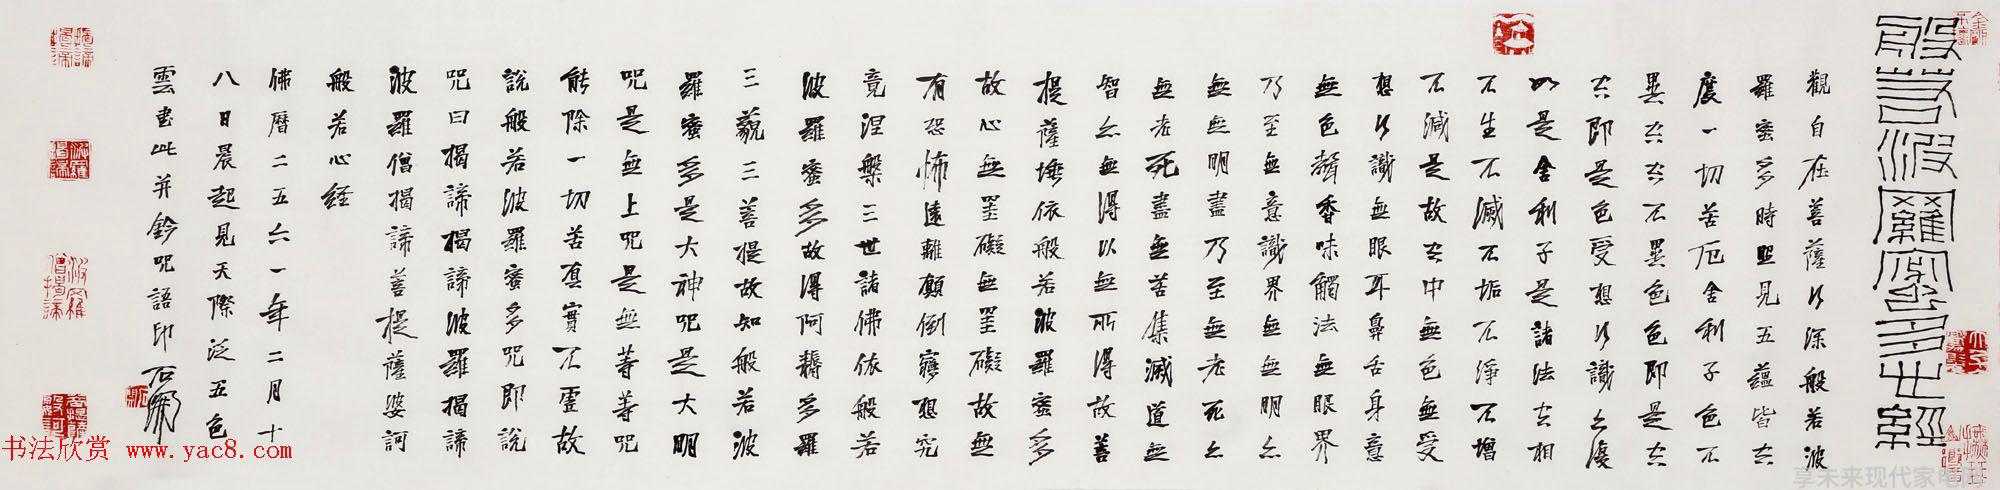 般若波羅蜜多心經
觀自在菩薩行深般若波
羅蜜多時照見五蘊皆空
度一切苦厄舍利子色不
異空空不異色色即是空
空即是色受想行識亦復
如是舍利子是諸法空相
不生不滅不垢不淨不增
不減是故空中無色無受
想行識無眼耳鼻舌身意
無色聲香味觸法無眼界
乃至無意識界無無明亦
無無明盡乃至無老死亦
無老死盡無苦集滅道無
智亦無得以無所得故菩
提薩埵依般若波羅蜜多
故心無罣礙無罣礙故無
有恐怖遠離顛倒夢想究
竟涅槃三世諸佛依般若
波羅蜜多故得阿耨多羅
三藐三菩提故知般若波
羅蜜多是大神咒是大明
咒是無上咒是無等等咒
能除一切苦真實不虛故
說般若波羅蜜多咒即說
咒曰揭諦揭諦波羅揭諦
波羅僧揭諦菩提薩婆訶
般若心经
佛曆二五六一年二月十
八日晨起見天際泛五色
雲書此并鈐咒語印 石開
揭諦揭諦
波羅揭諦
波羅僧揭諦
菩提薩婆訶
书法欣赏 www.yac8.com
享未来现代家